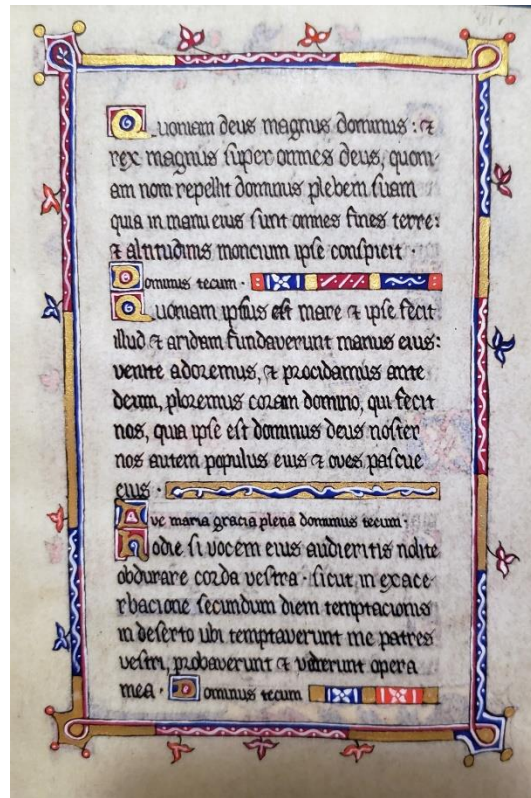 Quoniam deus magnus dominus : ⁊
rex magnus super omnes deus, quoni-
am non repellit dominus plebem suam
quia in manu eius sunt omnes fines terre:
⁊ altitudinis moncium ipse conspicit ·
Dominus tecum ·
Quoniam ipsius est mare ⁊ ipse fecit
illud ⁊ aridam fundaverunt manus eius:
venite adoremus, ⁊ procidamus ante
deum, ploremus coram domino, qui fecit
nos, quia ipse est dominus deus noster
nos autem populus eius ⁊ oves pascue
eius ·
Ave maria gracia plena dominus tecum ·
Hodie si vocem eius audieritis nolite
obdurare corda vestra · sicut in exace-
rbacione secundum diem temptacionis
in deserto ubi temptaverunt me patres
vestri, probaverunt ⁊ viderunt opera
mea · Dominus tecum